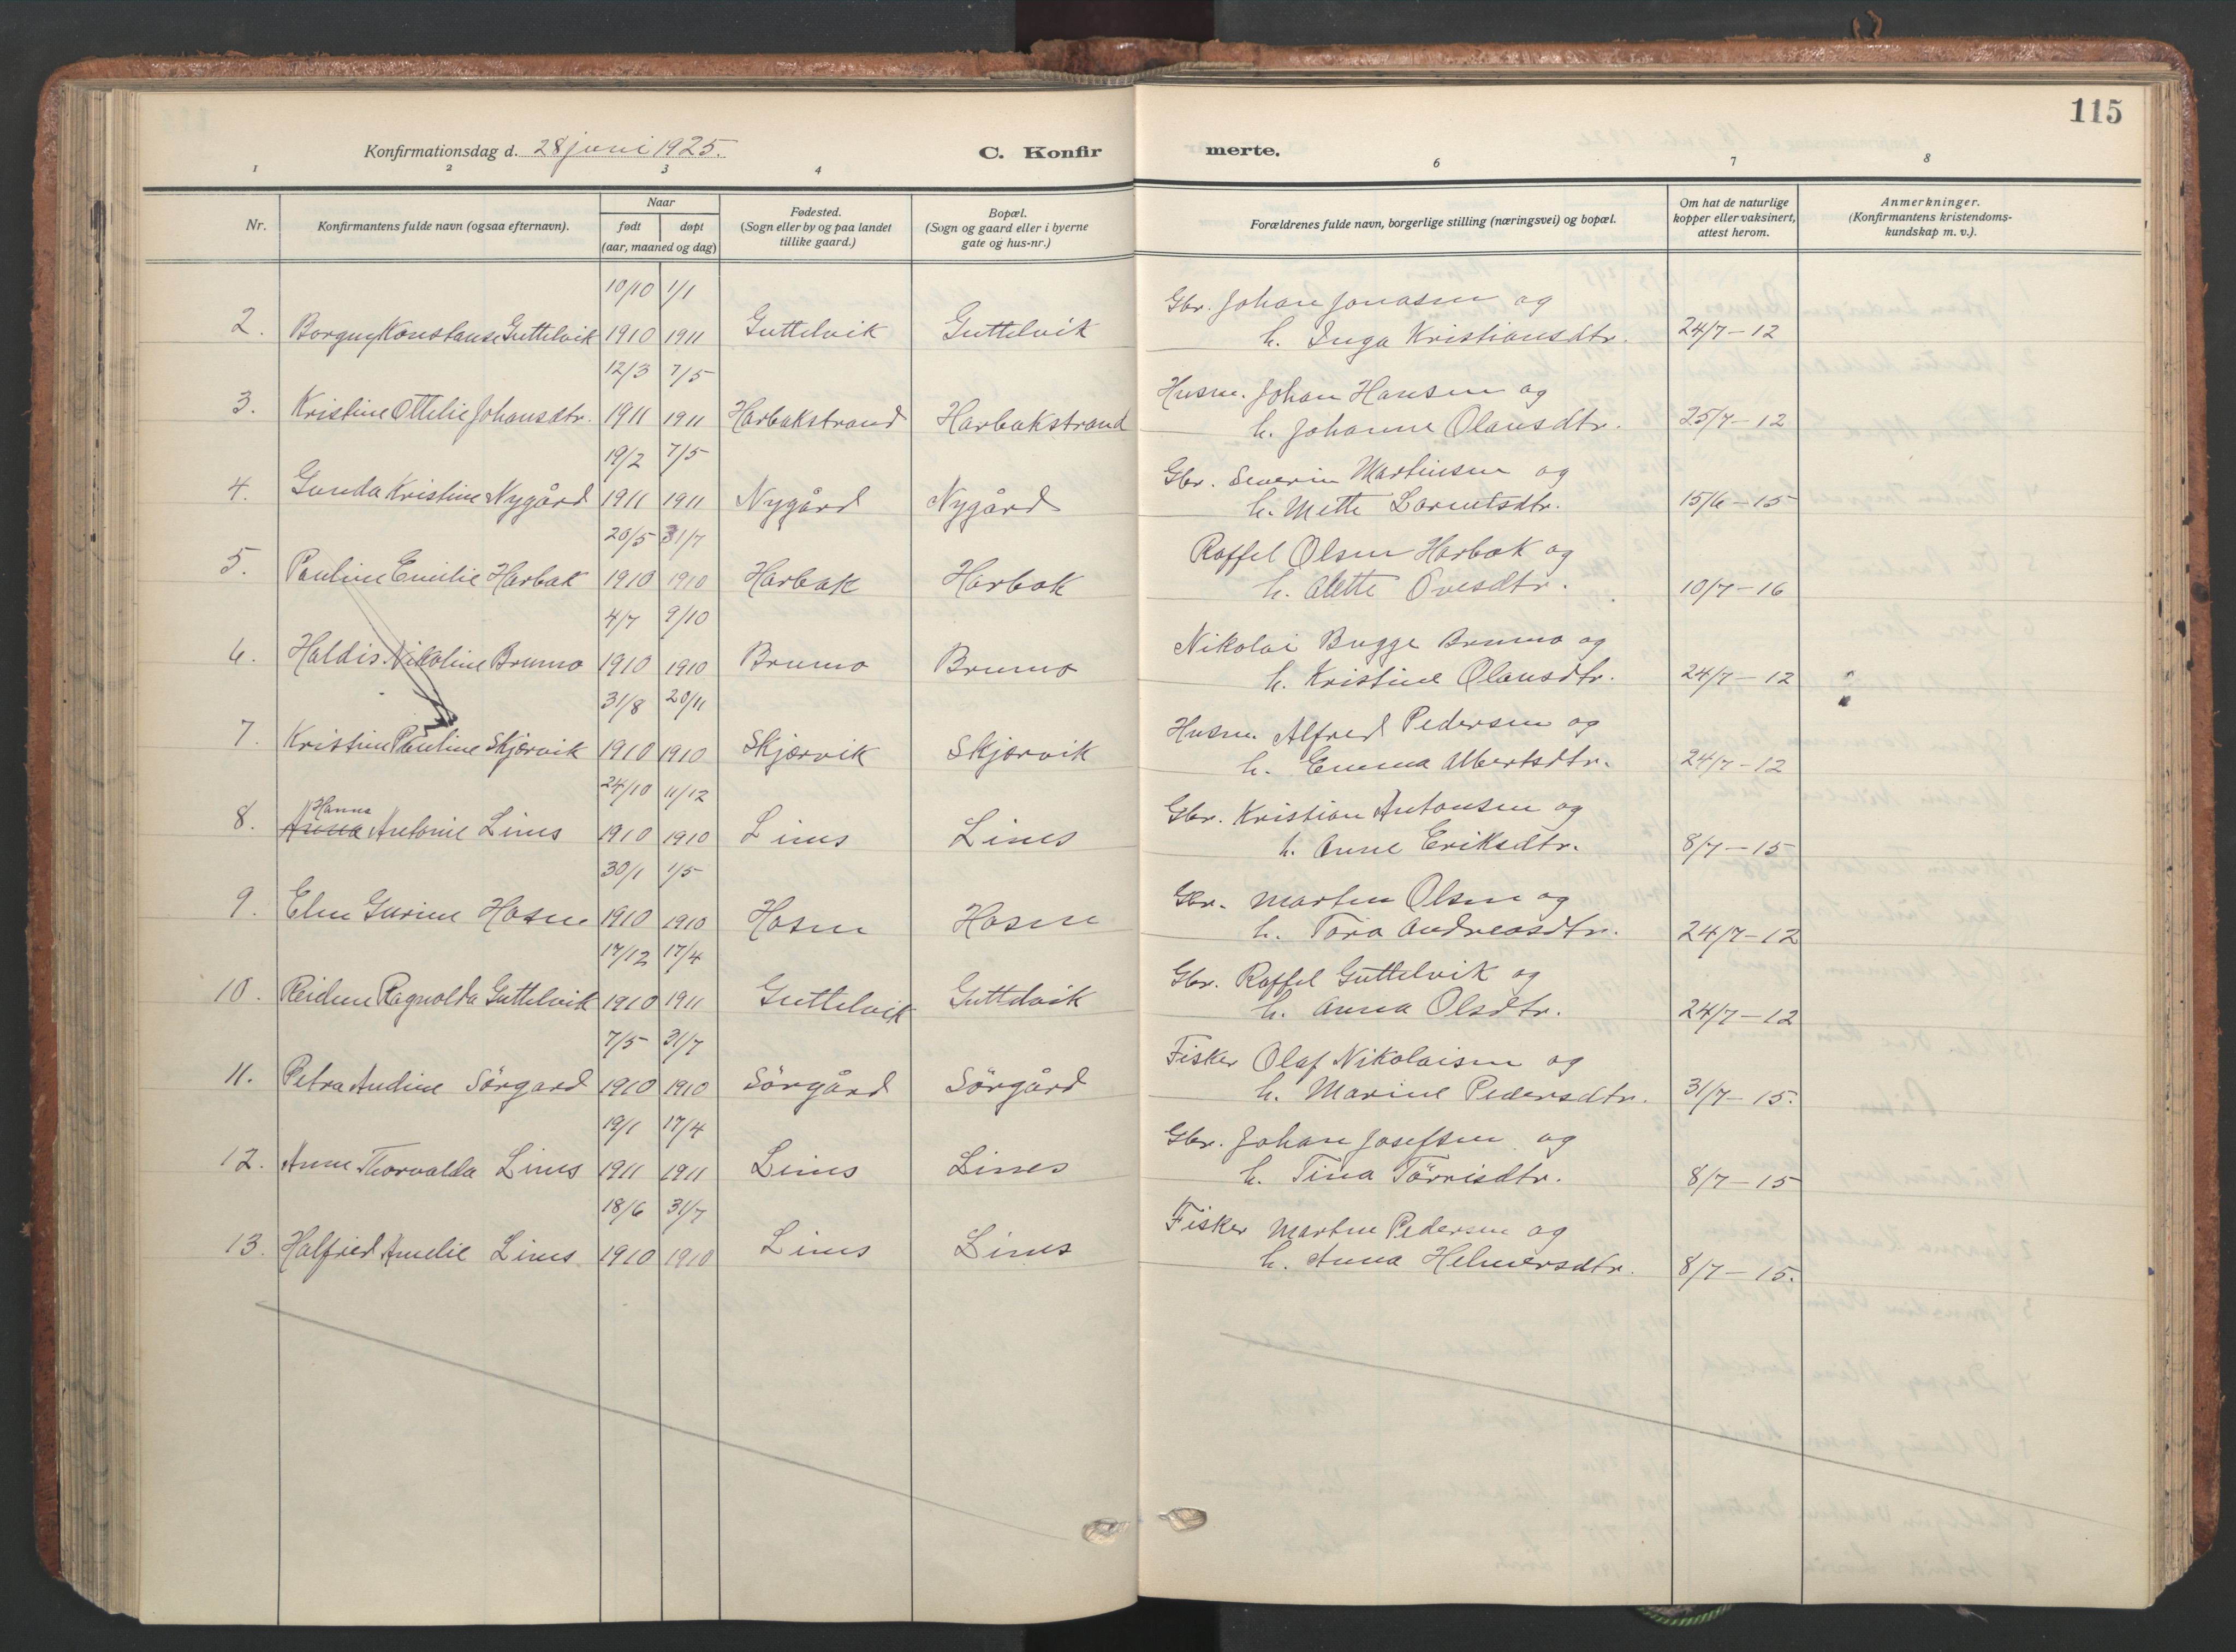 115
Konfirmationsdag d. 28 juni 1925.
C. Konfirmerte.
1 2 3 4 6 7 8
Nr.
Konfirmantens fulde navn (ogsaa efternavn).
Naar
født døpt
(aar, maaned og dag)
Fødested.
(Sogn eller by og paa landet
tillike gaard.)
Bopæl.
(Sogn og gaard eller i byerne
gate og hus-nr.)
Forældrenes fulde navn, borgerlige stilling (næringsvei) og bopæl.
Om hat de naturlige
kopper eller vaksinert,
attest herom.
Anmerkninger.
(Konfirmantens kristendoms-
kundskap m. v.).
10/10 1/1 Gbr. Johan Jonasen og
2. Borgny Konstanse Guttelvik 1910 1911 Guttelvik Guttelvik h. Inga Kristiansdtr. 24/7-12
12/3 7/5 Husm. Johan Hansen og
3. Kristine Ottilie Johansdtr. 1911 1911 Harbakstrand Harbakstrand h. Johanne Olausdtr. 25/7-12
19/2 7/5 Gbr. Severin Martinsen og
4. Gunda Kristine Nygård 1911 1911 Nygård Nygård h. Mette Lorentsdtr. 15/6-15
20/5 31/7 Roffel Olsen Harbak og
5. Pauline Emilie Harbak 1910 1910 Harbak Harbak h. Alette Ovesdtr. 10/7-16
4/7 9/10 Nikolai Bugge Brumo og
6. Haldis Nikoline Brumo 1910 1910 Brumo Brumo h. Kristine Olausdtr. 24/7-12
31/8 20/11 Husm. Alfred Pedersen og
7. Kristine Pauline Skjærvik 1910 1910 Skjærvik Skjærvik h. Emma Albertsdtr. 24/7-12
Hanna 24/10 11/12 Gbr. Kristian Antonsen og
8. Anna Antonie Lines 1910 1910 Lines Lines h. Anne Eriksdtr. 8/7-15
30/1 1/5 Gbr. Morten Olsen og
9. Elen Gurine Hosen 1910 1910 Hosen Hosen h. Tora Andreasdtr. 24/7-12
17/12 17/4 Gbr. Roffel Guttelvik og
10. Reidun Ragnolda Guttelvik 1910 1911 Guttelvik Guttelvik h. Anna Olsdtr. 24/7-12
7/5 31/7 Fisker Olaf Nikolaisen og
11. Petra Andine Sörgard 1910 1910 Sörgård Sörgård h. Marine Pedersdtr. 31/7-15.
19/1 17/4 Gbr. Johan Josefsen og
12. Anne Thorvalda Lines 1911 1911 Lines Lines h. Tina Törrisdtr. 8/7-15
18/6 31/7 Fisker Morten Pedersen og
13. Halfrid Amelie Lines 1910 1910 Lines Lines h. Anna Helmersdtr. 8/7-15.